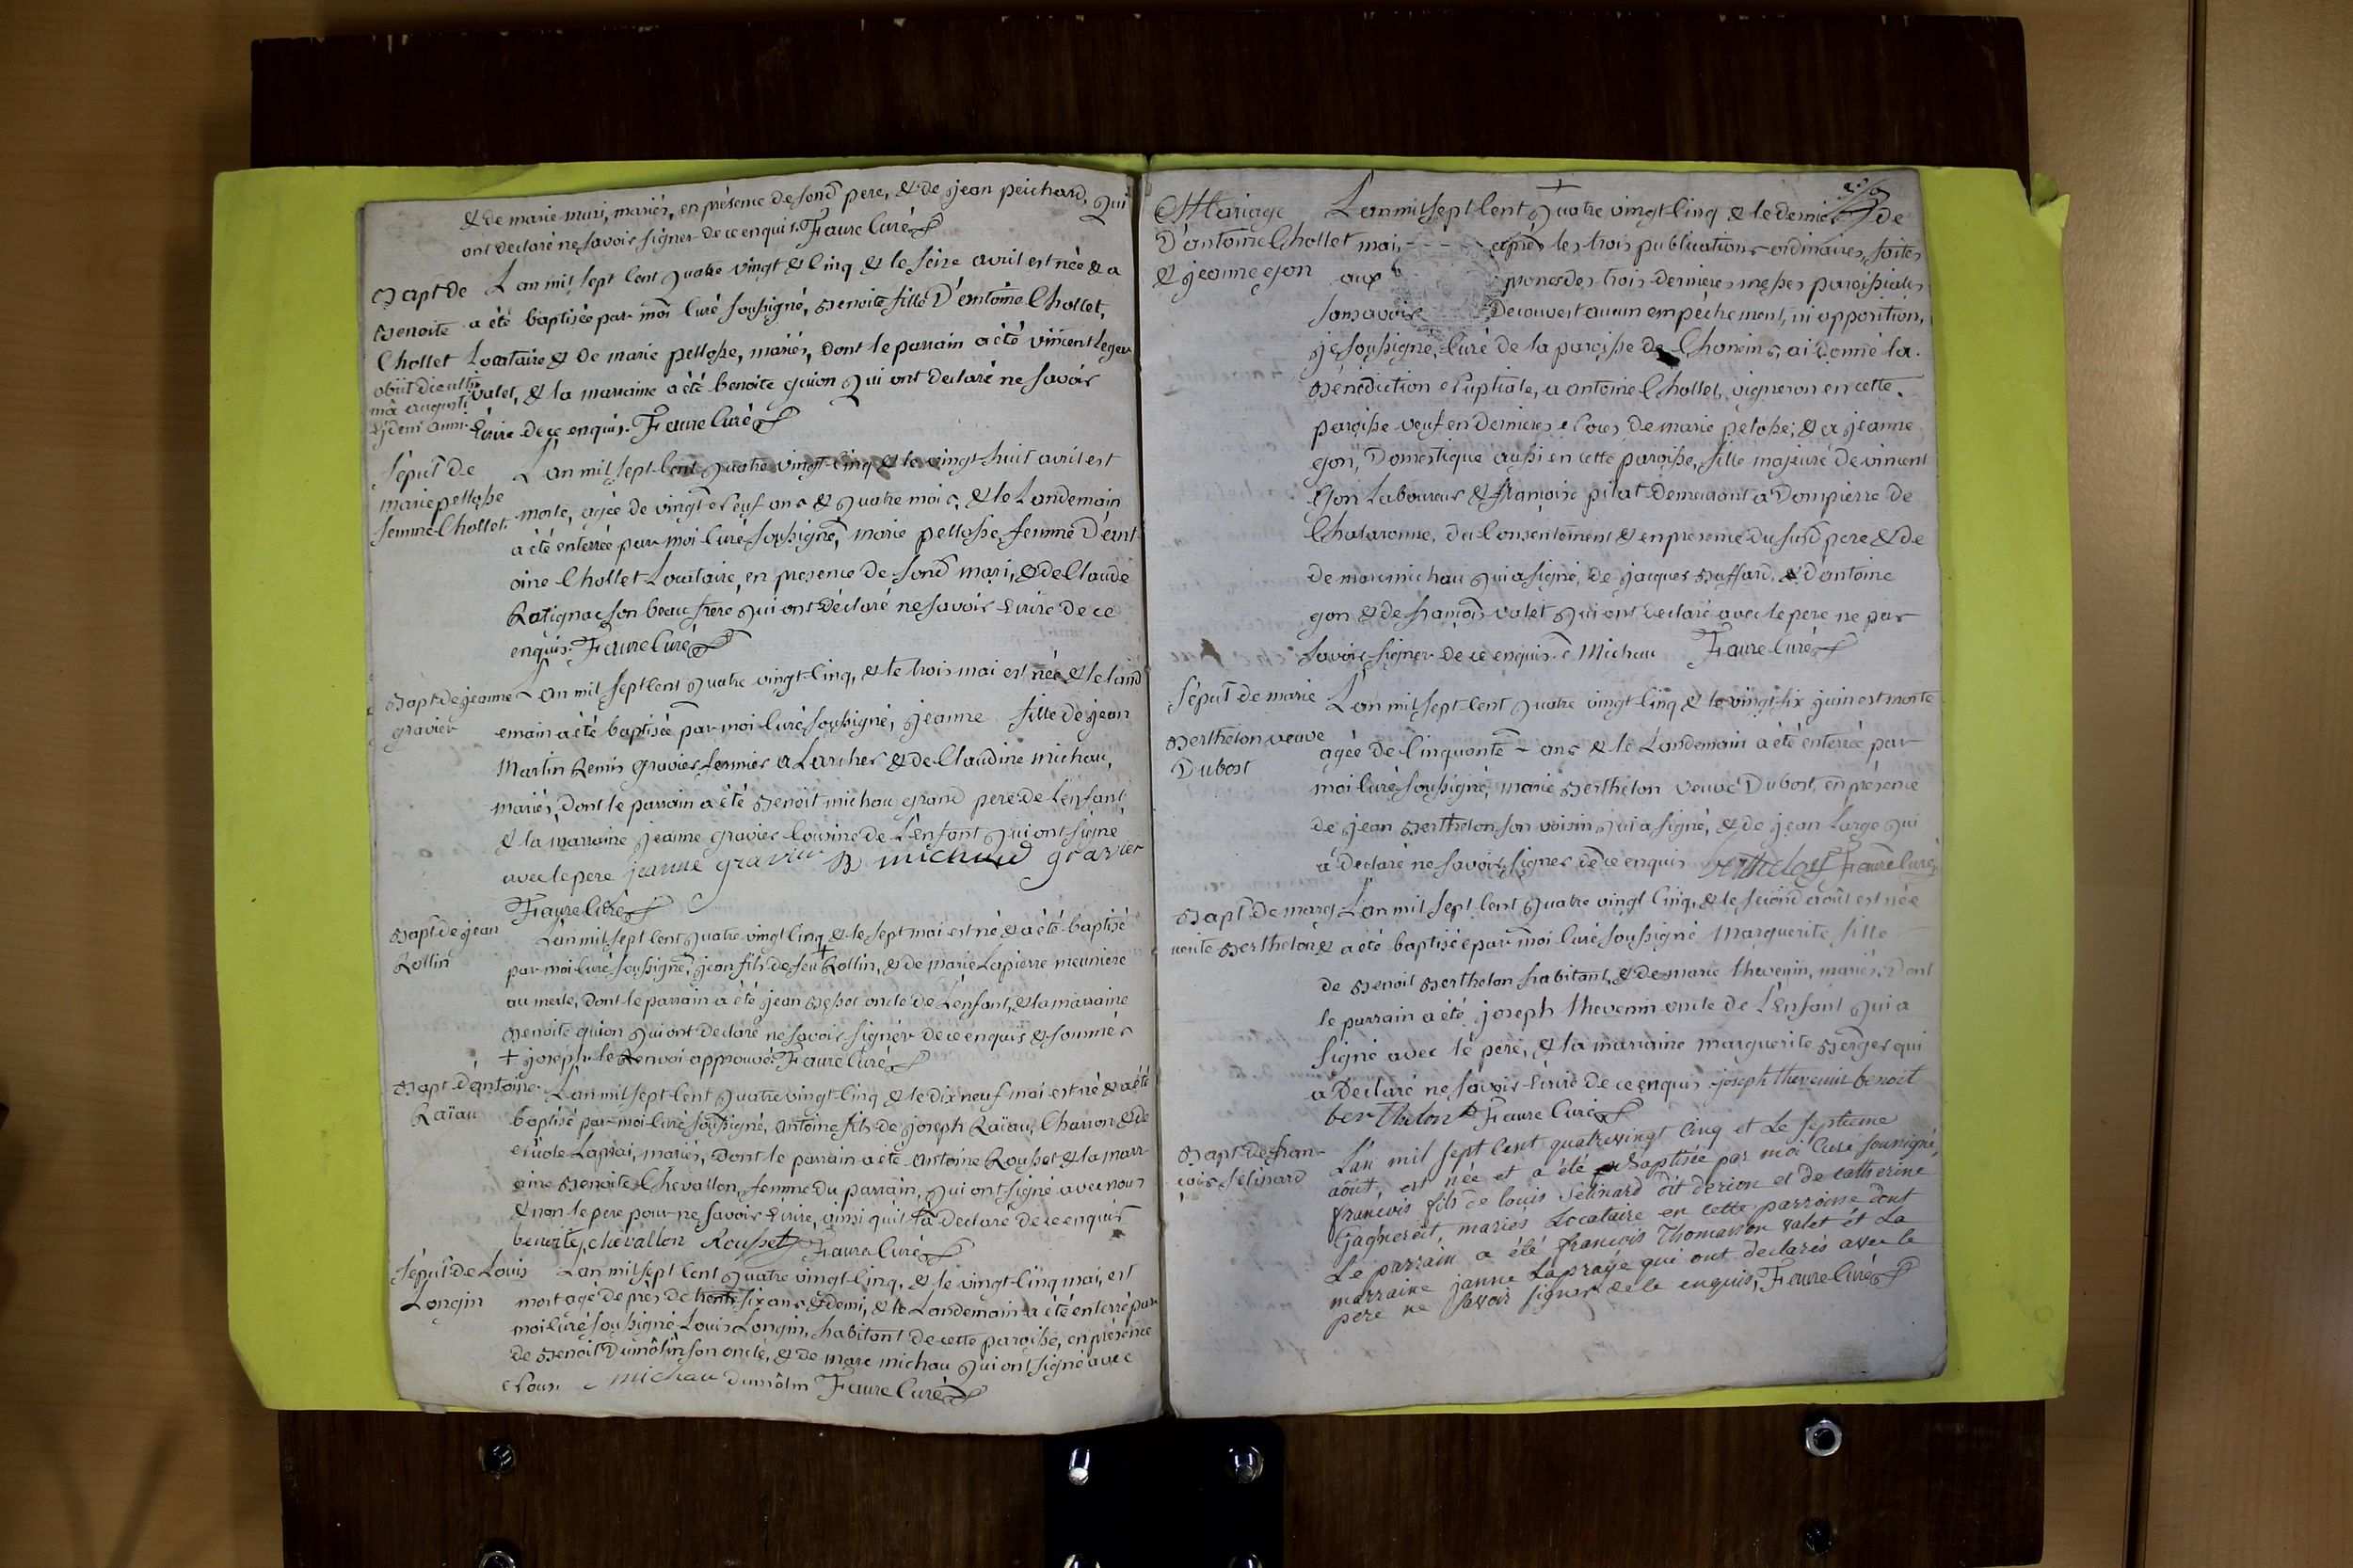 & de marie muri, mariés, en présence de sond pere, & de jean peichard, Qui
ont declaré ne savoir signer de ce enquis. Faure Curé
Bapt de
Benoite
Chollet
obiit die
augusti
ejdem anni
L'an mil sept Cent Quatre vingt & Cinq & le seize avril est née & a
a été baptisée par moi Curé soussigné, Benoite fille D'antoine Chollet,
Locataire & De marie pellosse, mariés, dont le parrain a été vincent Leger
valet, & la marraine a été benoite guion Qui ont declaré ne savoir
Ecrire de ce enquis. Faure Curé
Sépult de
marie pellosse
femme Chollet.
L'an mil sept Cent Quatre vingt Cinq & le vingt huit avril est
morte, agée de vingt Neuf ans & Quatre mois, & le Landemain
a été enterrée par moi Curé soussigné, marie pellosse femme D'ant
oine Chollet Locataire, en presence de sond mari, & de Claude
Ratignac son beau frere Qui ont Déclaré ne savoir Ecrire De ce
enquis. Faure Curé
Bapt de jeanne
gravier
L'an mil sept Cent Quatre vingt Cinq, & le trois mai est née & le land
emain a été baptisée par moi Curé soussigné, jeanne fille de jean
Martin Remis gravier fermier a Larcher & de Claudine michau,
mariés, Dont le parrain a été Benoit michau grand pere de L'enfant,
& la marraine jeanne gravier Cousine de L'enfant Qui ont signé
avec le pere jeanne gravier B michaud gravier
Faure Curé
Bapt de jean
Rollin
L'an mil sept Cent Quatre vingt Cinq & le sept mai est né & a été baptisé
par moi Curé soussigné, jean fils de feu + Rollin, & de marie Lapierre meuniere
au merle, Dont le parrain a été jean Besset oncle de L'enfant, & la marraine
Benoite guion Qui ont Declaré ne savoir signer de ce enquis & sommés
+ joseph le Renvoi approuvé. Faure Curé
Bapt D'antoine
Raïau
L'an mil sept Cent Quatre vingt Cinq & le dix neuf mai est né & a été
baptisé par moi Curé soussigné, Antoine fils de joseph Raïau, Charron & de
Nicole Laprai, mariés, Dont le parrain a été Antoine Rousset & la marr
aine Benoite Chevallon, femme Du parrain, Qui ont signé avec nous
& non le pere pour ne savoir Ecrire, ainsi quil l'a Declaré De ce enquis
benoite chevallon Rousset Faure Curé
Sépult de Louis
Longin
L'an mil sept Cent Quatre vingt Cinq, & le vingt Cinq mai, est
mort agé de près de trente six ans & demi, & le Landemain a été enterré par
moi Curé soussigné Louis Longin, habitant de cette paroisse, en présence
de Benoit Dumôlin son oncle, & de marc michau Qui ont signé avec
Nous. Michau dumôlin Faure Curé
Mariage
D'antoine Chollet
& jeanne gon
L'an mil sept Cent Quatre vingt Cinq & le dernier de
mai, après les trois publications ordinaires, faites
aux prones des trois dernieres messes paroissiales
sans avoir Decouvert aucun empêchement, ni opposition,
je soussigné, Curé de la paroisse de Chaneins, ai Donné la
Bénédiction Nuptiale, a antoine Chollet, vigneron en cette
paroisse veuf en Dernieres Noces de marie pelosse; & a jeanne
gon, Domestique aussi en cette paroisse, fille majeure De vincent
Gon Laboureur & françoise pilat Demeurant a Dompierre de
Chalaronne, Du Consentement & en presence Du susd pere & de
de marc michau Qui a signé, de jacques Buffard, & D'antoine
gon & de françois valet Qui ont declaré avec le pere ne pas
Savoir signer De ce enquis. Michau Faure Curé
Sépult de marie
Berthelon veuve
Dubost
L'an mil sept Cent Quatre vingt Cinq & le vingt six juin est morte
agée de Cinquante ans & le Landemain a été enterrée par
moi Curé soussigné, marie Berthelon veuve Dubost, en présence
de jean Berthelon son voisin Qui a signé, & de jean Large Qui
a Declaré ne savoir signer de ce enquis Berthelon Faure Curé
Bapt De marg
uerite Berthelon
L'an mil sept Cent Quatre vingt Cinq, & le second août est née
& a été baptisée par moi Curé soussigné Marguerite fille
de Benoit Berthelon habitant, & De marie thevenin, mariés, Dont
le parrain a été joseph thevenin oncle de L'Enfant Qui a
signé avec le pere, & la marraine marguerite Berger qui
a Declaré ne savoir Ecrire De ce enquis joseph thevenin benoit
berthelon Faure Curé
Bapt de fran
cois selinard
L'an mil sept Cent quatrevingt Cinq et Le septieme
aôut, est née et a été Baptisée par moi Curé soussigné,
francois fils de louis Selinard dit derion et de catherine
Gagneret, mariés Locataire en cette parroisse dont
Le parrain a été francois Thomasson valet et La
marraine janne Lapraye qui ont declarés avec le
pere ne savoir signer de ce enquis, Faure Curé